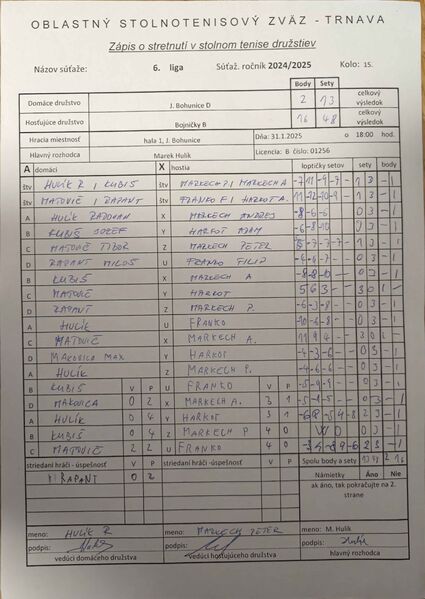 OBLASTNÝ STOLNOTENISOVÝ ZVÄZ - TRNAVA
Zápis o stretnutí v stolnom tenise družstiev
Názov súťaže: 6. liga Súťaž. ročník 2024/2025 Kolo: 15.
Body Sety
Domáce družstvo J. Bohunice D 2 13 celkový výsledok
Hosťujúce družstvo Bojničky B 16 48 celkový výsledok
Hracia miestnosť hala 1, J. Bohunice Dňa: 31.1.2025 o 18:00 hod.
Hlavný rozhodca Marek Hulík Licencia: B číslo: 01256
A domáci X hostia loptičky setov sety body
štv HULÍK R / KUBIŠ štv MARKECH P / MARKECH A 1 3 - 1
štv MATOVIČ / RAPANT štv FRANKO F / HARKOT A. 1 3 - 1
A HULÍK RADOVAN X MARKECH ANDREJ -8-6-6 0 3 - 1
B KUBIŠ JOZEF Y HARKOT ADAM 0 3 - 1
C MATOVIČ TIBOR Z MARKECH PETER 1 3 - 1
D RAPANT MILOŠ U FRANKO FILIP 0 3 - 1
B KUBIŠ X MARKECH A 0 3 - 1
C MATOVIČ Y HARKOT 5 6 3 - - 3 0 1 -
D RAPANT Z MARKECH P. -6-3-8 0 3 - 1
A HULÍK U FRANKO -10-6-8 0 3 - 1
C MATOVIČ X MARKECH A. 11 9 4 - - 3 0 1
D MAKOVICA MAX Y HARKOT -4-3-6 0 3 - 1
A HULÍK Z MARKECH P. -4-6-6 0 3 - 1
B KUBIŠ V P U FRANKO V P -5-9-9 0 3 - 1
D MAKOVICA 0 2 X MARKECH A. 3 1 0 3 - 1
A HULÍK 0 4 Y HARKOT 3 1 2 3 - 1
B KUBIŠ 0 4 Z MARKECH P 4 0 WO 0 3 - 1
C MATOVIČ 2 2 U FRANKO 4 0 2 3 - 1
striedaní hráči - úspešnosť V P striedaní hráči - úspešnosť V P Spolu body a sety 13 48 2 16
RAPANT 0 2 Námietky Áno Nie
ak áno, tak pokračujte na 2. strane
meno: HULÍK R meno: MARKECH PETER meno: M. Hulik
podpis: podpis: podpis:
vedúci domáceho družstva vedúci hosťujúceho družstva hlavný rozhodca